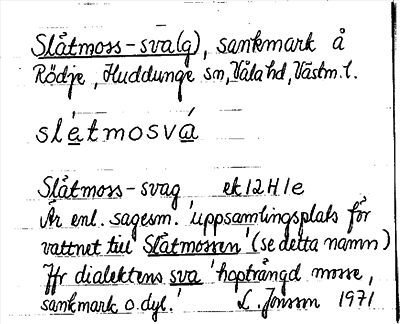 Slåtmoss-sva(g), sankmark å
Rödje, Huddunge sn, Våla hd, Västm. l.
slátmosvá
Slåtmoss-svag ek 12 H 1e
Är enl. sagesm. 'uppsamlingsplats för
vattnet till Slåtmossen' (se detta namn)
Jfr dialektens sva 'hopträngd mosse,
sankmark o.dyl.' L. Jonsson 1971